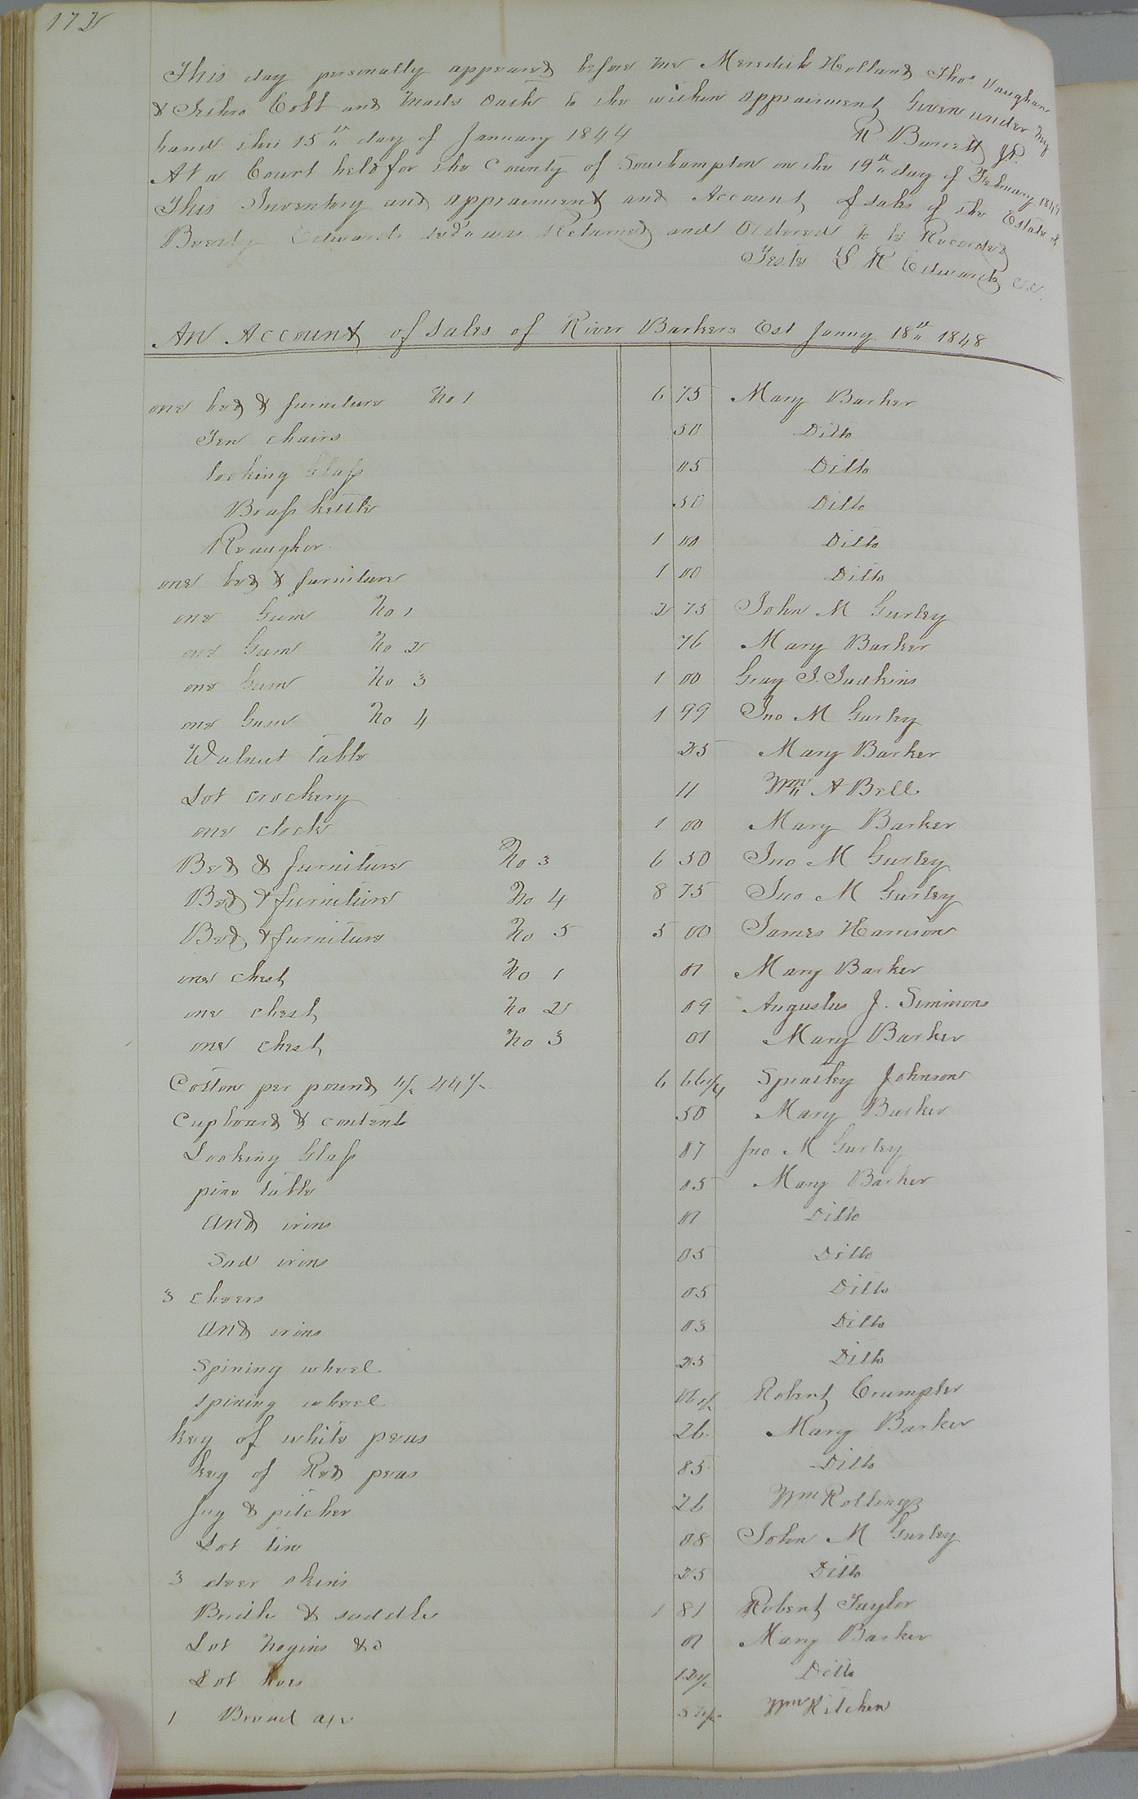 172
This day personally appeared before me Meredith Holland Thos Vaughan
& Jethro Cobb and made oath to the within appraisment Given under my
hand this 15th day of January 1844 R. Barrett J.P.
At a Court held for the County of Southampton on the 19th day of February 1844
This Inventory and appraisment and Account of sales of the Estate of
Edwards decd was Returned and Ordered to be Recorded
Teste L R Edwards
An Account of Sales of River Barkers Est Janny 18th 1848
one bed & furniture No 1 6 75 Mary Barker
Ten chairs 50 Ditto
looking Glass 05 Ditto
Brass kettle 50 Ditto
1 00 Ditto
one bed & furniture 1 00 Ditto
one Gum No 1 2 75 John M Gurley
one Gum No 2 76 Mary Barker
one Gum No 3 1 00 Gray J. Judkins
one Gum No 4 1 99 Jno M Gurley
Walnut table 25 Mary Barker
Lot crockery 11 Wm A Bell
one clock 1 00 Mary Barker
Bed & furniture No 3 6 50 Jno M Gurley
Bed & furniture No 4 8 75 Jno M Gurley
Bed & furniture No 5 5 00 James Harrison
one chest No 1 01 Mary Barker
one chest No 2 09 Augustus J. Simmons
one chest No 3 01 Mary Barker
Cotton per pound 6 66 1/4 Spratley Johnson
Cupboard & contents 50 Mary Barker
Looking Glass 07 Jno M Gurley
pine table 05 Mary Barker
and irons 01 Ditto
Sad irons 05 Ditto
3 chears 05 Ditto
and irons 03 Ditto
Spining wheel 25 Ditto
spining wheel 06 1/2 Robert Crumpler
keg of white peas 26 Mary Barker
keg of Red peas 85 Ditto
Jug & pitcher 26 Wm Rollings
Lot tin 08 John M Gurley
3 deer skins 25 Ditto
Bridle & saddle 1 81 Robert Taylor
Lot Nogins &c 01 Mary Barker
Lot hoes 12 1/2 Ditto
1 Broad axe Wm Kitchen